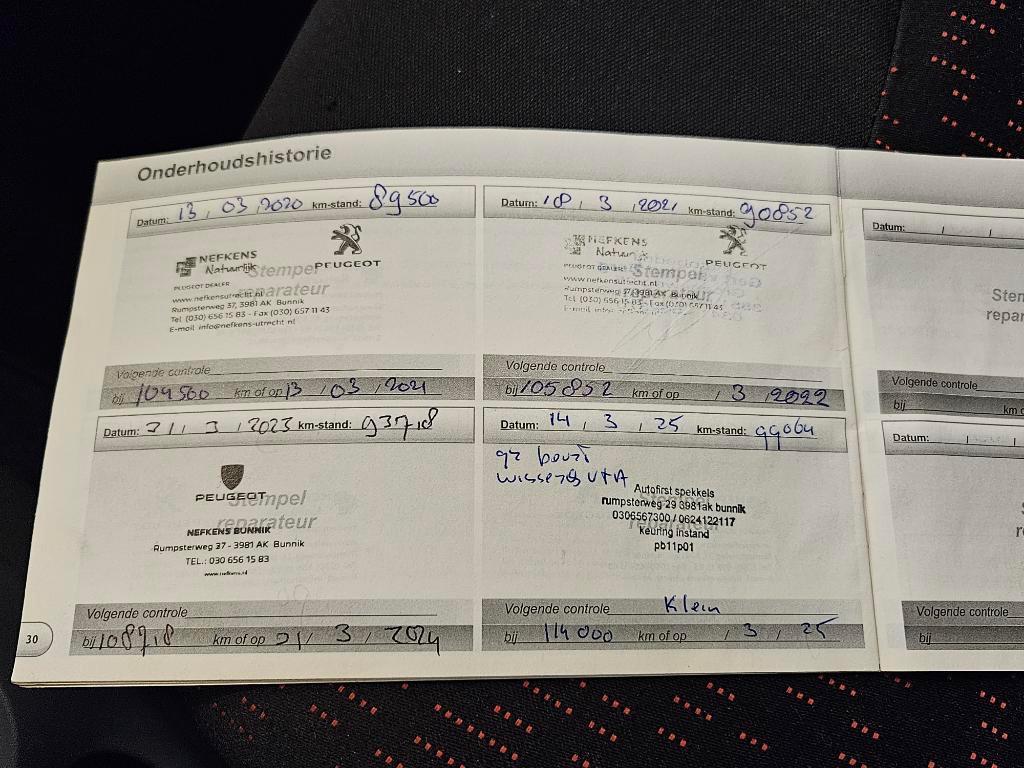 Onderhoudshistorie
Datum: 13 / 03 / 2020 km-stand: 89500
NEFKENS
Natuurlijk
PEUGEOT
PEUGEOT DEALER
Stempel
reparateur
www.nefkensutrecht.nl
Rumpsterweg 37, 3981 AK Bunnik
Tel. (030) 656 15 83 - Fax (030) 657 11 43
E-mail info@nefkens-utrecht.nl
Volgende controle
bij 104500 km of op 13 / 03 / 2021
Datum: 18 / 3 / 2021 km-stand: 90852
NEFKENS
Natuurlijk
PEUGEOT
PEUGEOT DEALER
Stempel
reparateur
www.nefkensutrecht.nl
Rumpsterweg 37, 3981 AK Bunnik
Tel. (030) 656 15 83 - Fax (030) 657 11 43
Volgende controle
bij 105852 km of op / 3 / 2022
Datum: 21 / 3 / 2023 km-stand: 93718
PEUGEOT
Stempel
reparateur
NEFKENS BUNNIK
Rumpsterweg 37 - 3981 AK Bunnik
TEL.: 030 656 15 83
www.nefkens.nl
Volgende controle
bij 108718 km of op 21 / 3 / 2024
Datum: 14 / 3 / 25 km-stand: 99064
gr beurt
wissers V+A
Autofirst spekkels
rumpsterweg 29 3981ak bunnik
0306567300 / 0624122117
Keuring instand
pb11p01
Volgende controle Klein
bij 114000 km of op / 3 / 25
30
Datum: / /
Stem
repar
Volgende controle
bij km o
Datum: / /
Volgende controle
bij